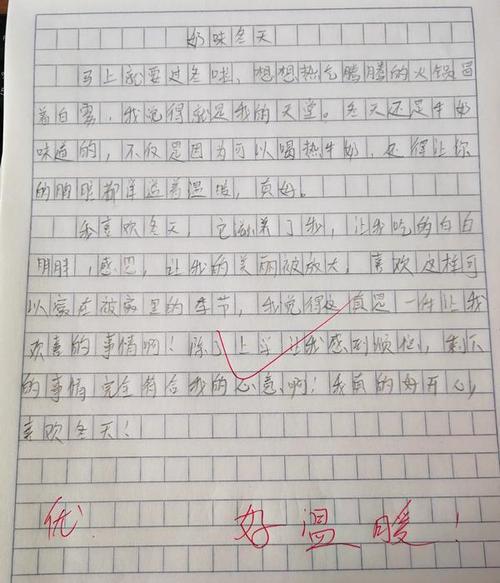 奶味冬天
马上就要过冬啦，想想热气腾腾的火锅冒
着白雾，我觉得就是我的天堂。冬天还是牛奶
味道的，不仅是因为可以喝热牛奶，还得让你
的眼眶都洋溢着温暖，真好。
我喜欢冬天，它滋养了我，让我吃的白白
胖胖，感恩，让我的美丽被放大，喜欢这种可
以窝在被窝里的季节，我觉得这真是一件让我
欢喜的事情啊！除了上学让我感到烦恼，剩下
的事情完全符合我的心意啊！我真的好开心，
喜欢冬天！
优
好温暖！